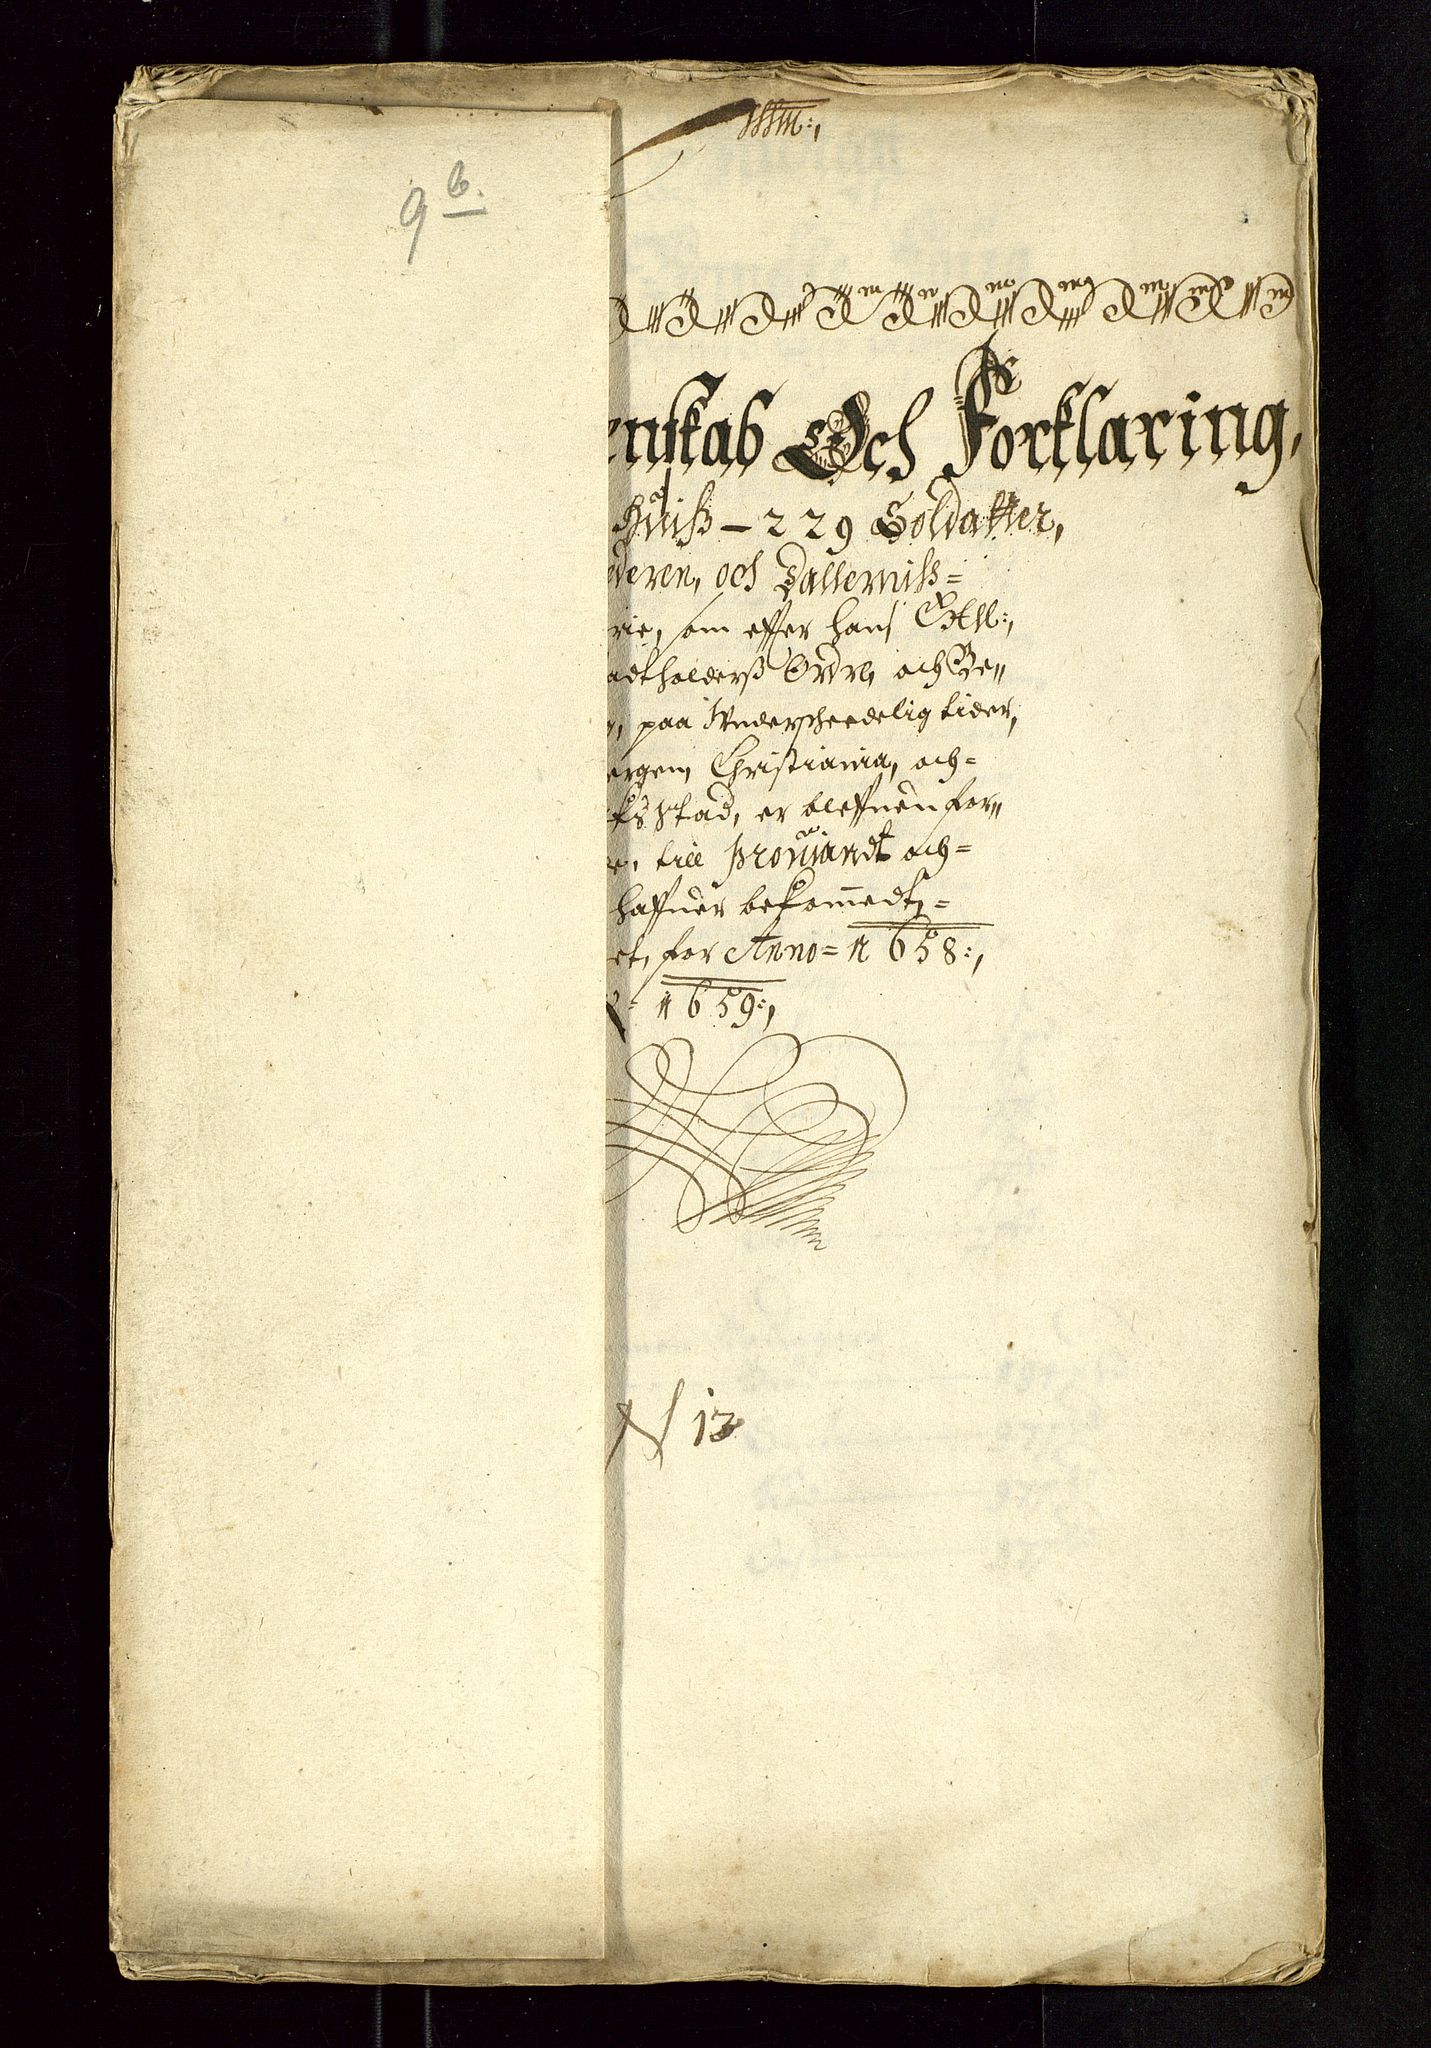 9 b.
enskab Och Forklaring,
Huiß – 229 Soldatter,
ederen, och Dallerniß=
rie, som effter hans Exell:,
adtholderß Ordre, och Be„
paa Underscheedelig tider,
ergen, Christiania, och=
Stad, er bleffuen for„
till Proviandt och=
haffuer bekommedt,=
et, for Anno= 1658:,
1659:,
N 13